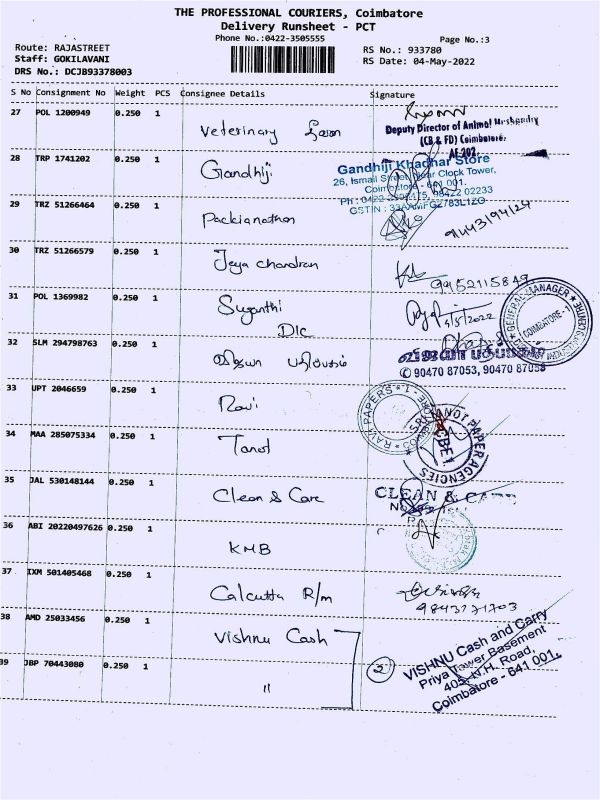 THE PROFESSIONAL COURIERS, Coimbatore
Delivery Runsheet - PCT
Phone No.:0422-3505555
Page No.:3
Route: RAJASTREET
RS No.: 933780
Staff: GOKILAVANI
RS Date: 04-May-2022
DRS No.: DCJB93378003
S No Consignment No Weight PCS Consignee Details Signature
27 POL 1200949 0.250 1 Veterinary
Deputy Director of Animal Husbandry
(CB & FD) Coimbatore.
28 TRP 1741202 0.250 1 Gandhiji
Gandhiji Khadhar Store
26, Ismail Street, Near Clock Tower,
Coimbatore - 641 001.
29 TRZ 51266464 0.250 1 Packianathan
9443194124
30 TRZ 51266579 0.250 1 Jeya chandran
9952115849
31 POL 1369982 0.250 1 Suganthi
4/5/2022
GENERAL MANAGER
COIMBATORE - 1
DIC
32 SLM 294798763 0.250 1 விஜயா பதிப்பகம்
விஜயா பதிப்பகம்
90470 87053, 90470 87058
33 UPT 2046659 0.250 1 Ravi
RAVI PAPERS
34 MAA 285075334 0.250 1 Tanot
SRI TANOT PAPER AGENCIES
CBE-1
35 JAL 530148144 0.250 1 Clean & Care
CLEAN & CARE
36 ABI 20220497626 0.250 1 KMB
37 IXM 501405468 0.250 1 Calcutta R/m
9843171703
38 AMD 25033456 0.250 1 Vishnu Cash
39 JBP 70443080 0.250 1 "
2
VISHNU Cash and Carry
Priya Tower Basement
405, N.H. Road,
Coimbatore - 641 001.